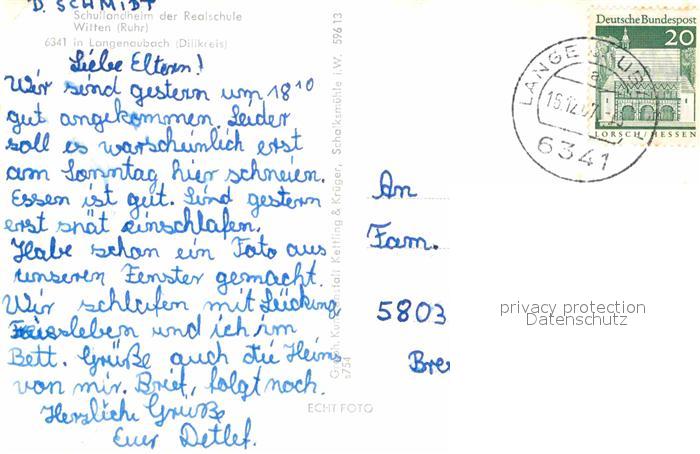 D. SCHMIDT
Schullandheim der Realschule
Witten (Ruhr)
6341 in Langenaubach (Dillkreis)
Liebe Eltern!
Wir sind gestern um 18¹⁰
gut angekommen. Leider
soll es warscheinlich erst
am Sonntag hier schneien.
Essen ist gut. Sind gestern
erst spät einschlafen.
Habe schon ein Foto aus
unseren Fenster gemacht.
Wir schlafen mit Lücking,
leben und ich im
Bett. Grüße auch die Heins
von mir. Brief, folgt noch.
Herzliche Grüße
Euer Detlef.
Graph. Kunstanstalt Kettling & Krüger, Schalksmühle i.W. 59613
s754
ECHT FOTO
Deutsche Bundespost
20
LORSCH/HESSEN
LANGENAUB
a
16.12.67
6341
An
Fam.
5803
Bre
privacy protection
Datenschutz